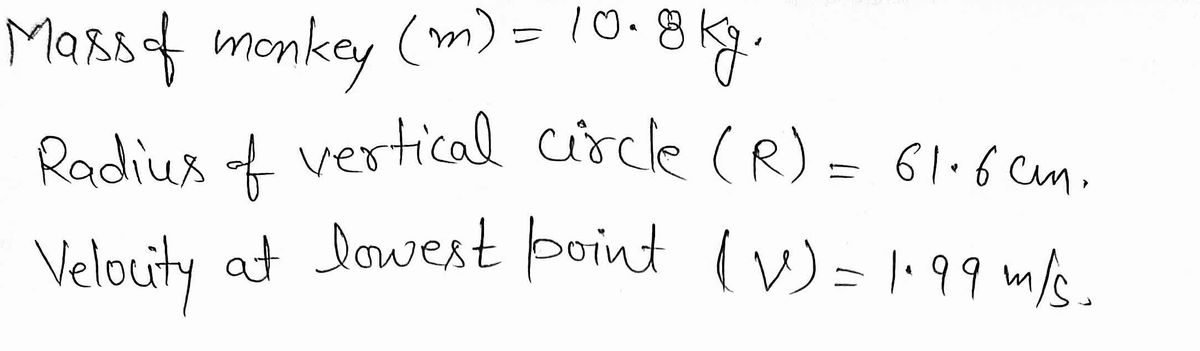 Mass of monkey (m) = 10.8 kg.
Radius of vertical circle (R) = 61.6 cm.
Velocity at lowest point (V) = 1.99 m/s.